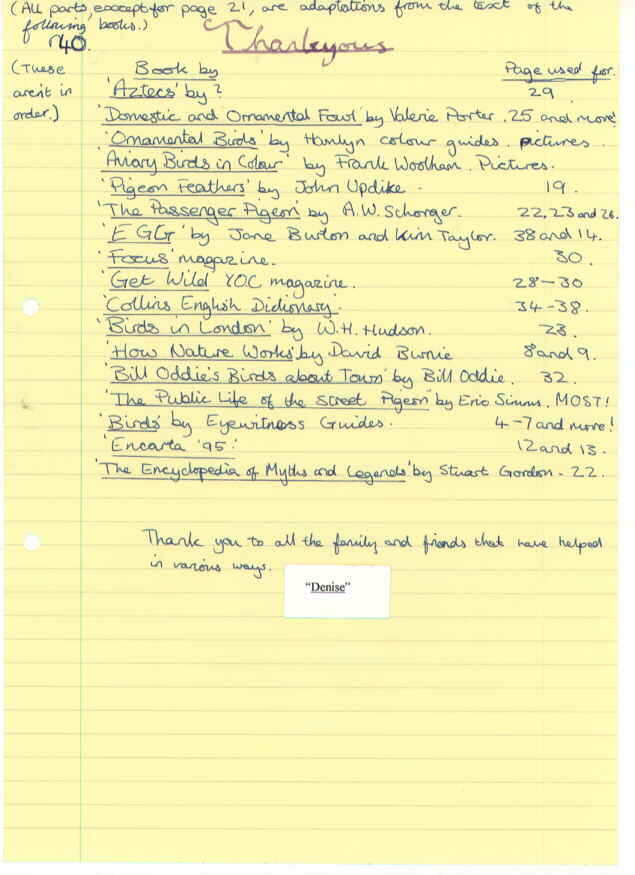 (All parts, except for page 21, are adaptations from the text of the
following books.)
40.
Thankyous
(These
aren't in
order.)
Book by
Page used for.
'Aztecs' by ?
29
'Domestic and Ornamental Fowl' by Valerie Porter. 25 and more!
'Ornamental Birds' by Hamlyn colour guides. pictures.
Aviary Birds in Colour' by Frank Woolham. Pictures.
'Pigeon Feathers' by John Updike. 19.
'The Passenger Pigeon' by A.W. Schorger. 22, 23 and 26.
'EGG' by Jane Burton and Kim Taylor. 38 and 14.
'Focus' magazine. 30.
'Get Wild' YOC magazine. 28-30
'Collins English Dictionary'. 34-38.
'Birds in London' by W.H. Hudson. 23.
'How Nature Works' by David Burnie 8 and 9.
'Bill Oddie's Birds about Town' by Bill Oddie. 32.
'The Public Life of the Street Pigeon' by Eric Simms. MOST!
'Birds' by Eyewitness Guides. 4-7 and more!
'Encarta '95.' 12 and 13.
'The Encyclopedia of Myths and Legends' by Stuart Gordon - 22.
Thank you to all the family and friends that have helped
in various ways.
"Denise"